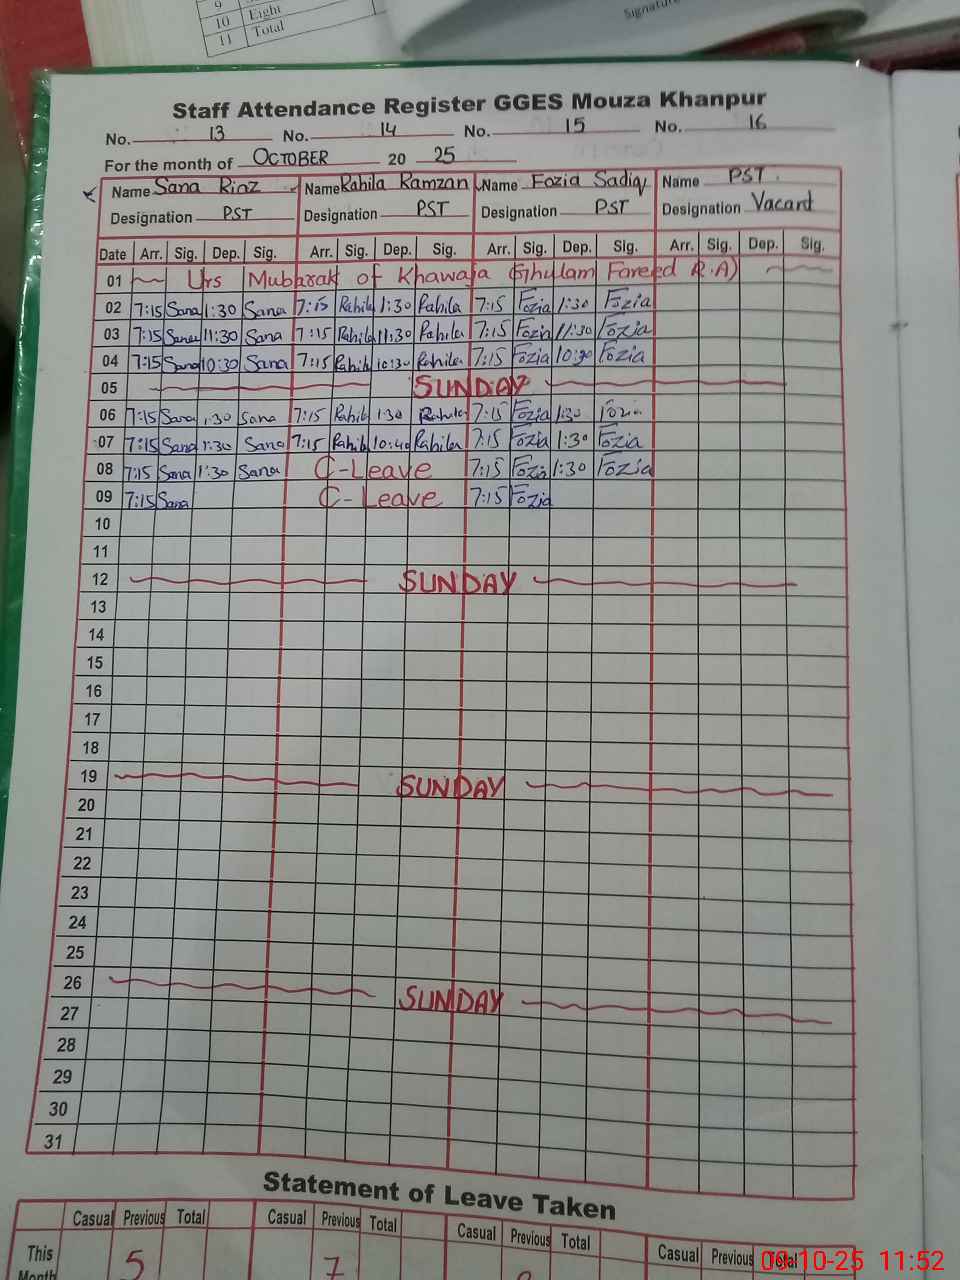 9
10 Eight
11 Total
Signature
Staff Attendance Register GGES Mouza Khanpur
No. 13 No. 14 No. 15 No. 16
For the month of OCTOBER 20 25
Name Sana Riaz Name Rahila Ramzan Name Fozia Sadiq Name PST.
Designation PST Designation PST Designation PST Designation Vacant
Date Arr. Sig. Dep. Sig. Arr. Sig. Dep. Sig. Arr. Sig. Dep. Sig. Arr. Sig. Dep. Sig.
01 Urs Mubarak of Khawaja Ghulam Fareed R.A)
02 7:15 Sana 1:30 Sana 7:15 Rahila 1:30 Rahila 7:15 Fozia 1:30 Fozia
03 7:15 Sana 11:30 Sana 7:15 Rahila 11:30 Rahila 7:15 Fozia 11:30 Fozia
04 7:15 Sana 10:30 Sana 7:15 Rahila 10:30 Rahila 7:15 Fozia 10:30 Fozia
05 SUNDAY
06 7:15 Sana 1:30 Sana 7:15 Rahila 1:30 Rahila 7:15 Fozia 1:30 Fozia
07 7:15 Sana 1:30 Sana 7:15 Rahila 10:40 Rahila 7:15 Fozia 1:30 Fozia
08 7:15 Sana 1:30 Sana C-Leave 7:15 Fozia 1:30 Fozia
09 7:15 Sana C-Leave 7:15 Fozia
10
11
12 SUNDAY
13
14
15
16
17
18
19 SUNDAY
20
21
22
23
24
25
26 SUNDAY
27
28
29
30
31
Statement of Leave Taken
Casual Previous Total Casual Previous Total Casual Previous Total Casual Previous Total
This Month 5 7
09-10-25 11:52